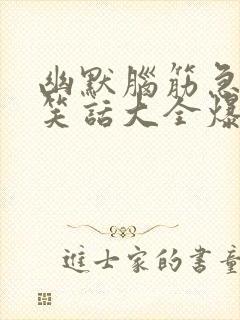 幽默腦筋急
笑話大全爆
進士家的書童